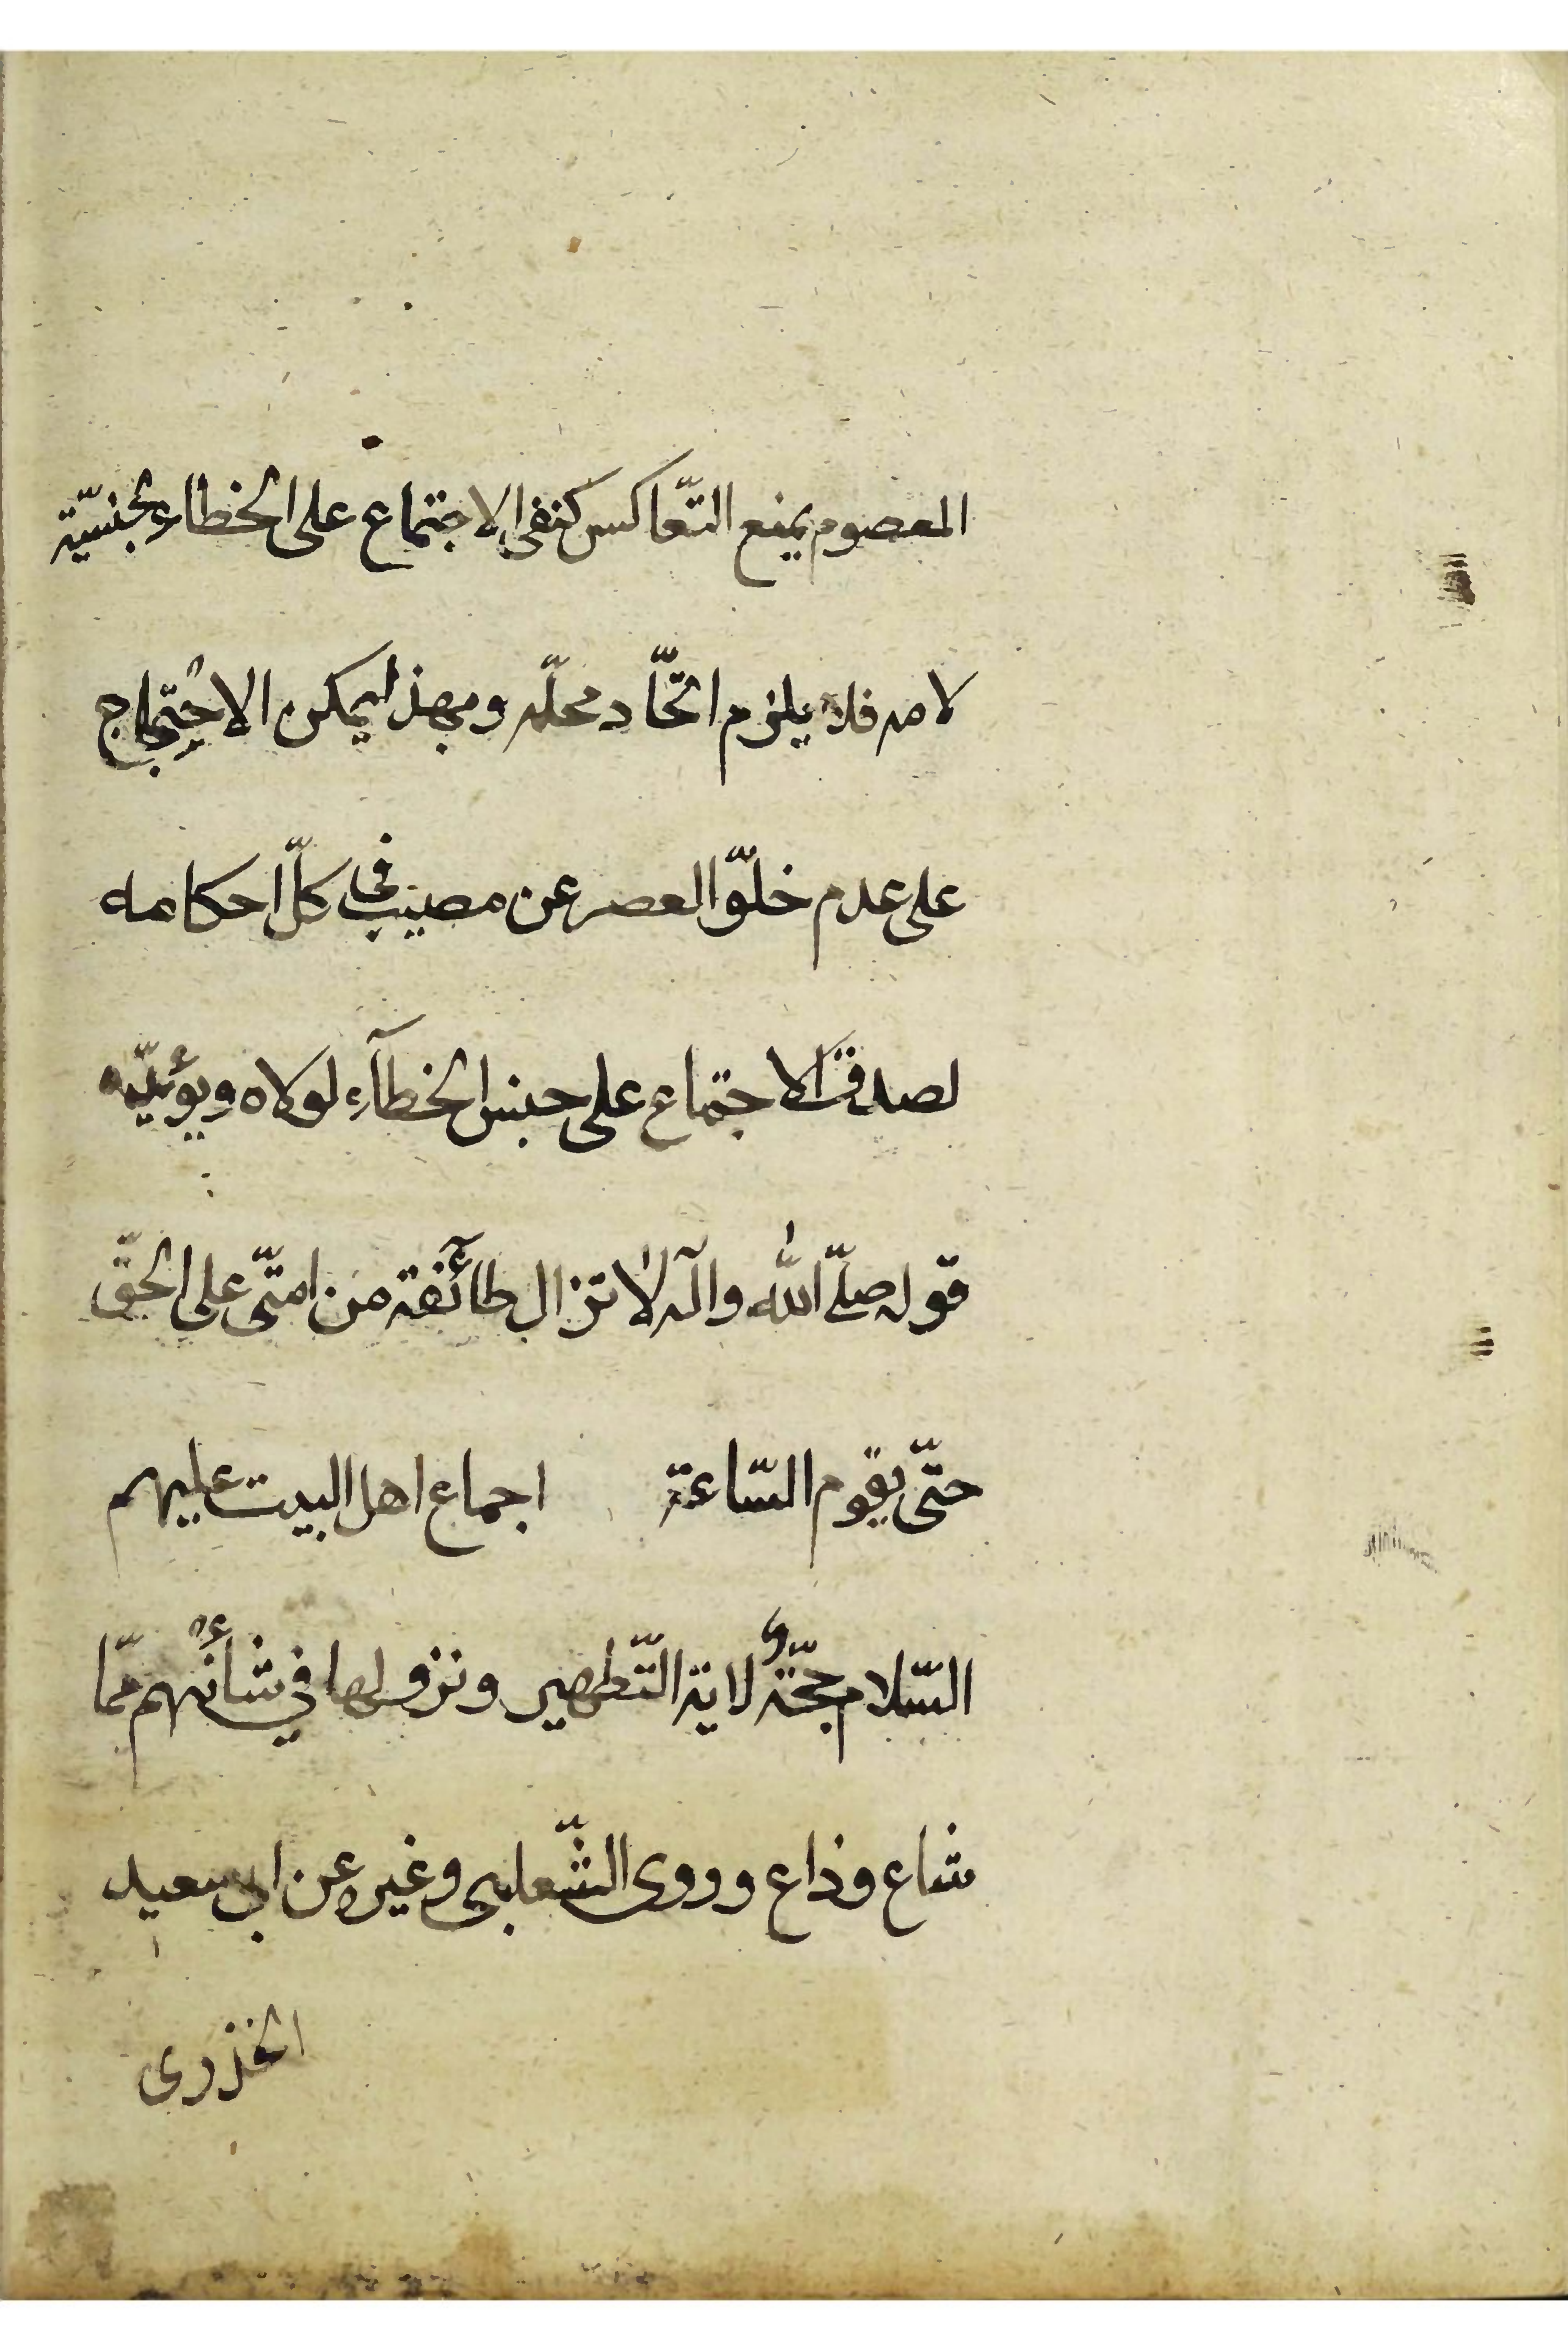 المعصوم يمنع التّعاكس كنفى الاجتماع على الخطاء لجنسيّة
لامه فلا يلزم اتّحاد محلّه وبهذا يمكن الاحتجاج
على عدم خلوّ العصر عن مصيب فى كلّ احكامه
لصدق الاجتماع على جنس الخطآء لولاه ويؤيّده
قوله صلّى اللّه وآله لا تزال طآئفة من امّتى على الحقّ
حتّى يقوم السّاعة اجماع اهل البيت عليهم
السّلام حجّة لاية التّطهير ونزولها في شأنهم ممّا
شاع وذاع وروى الثّعلبى وغيره عن ابى سعيد
الخذرى